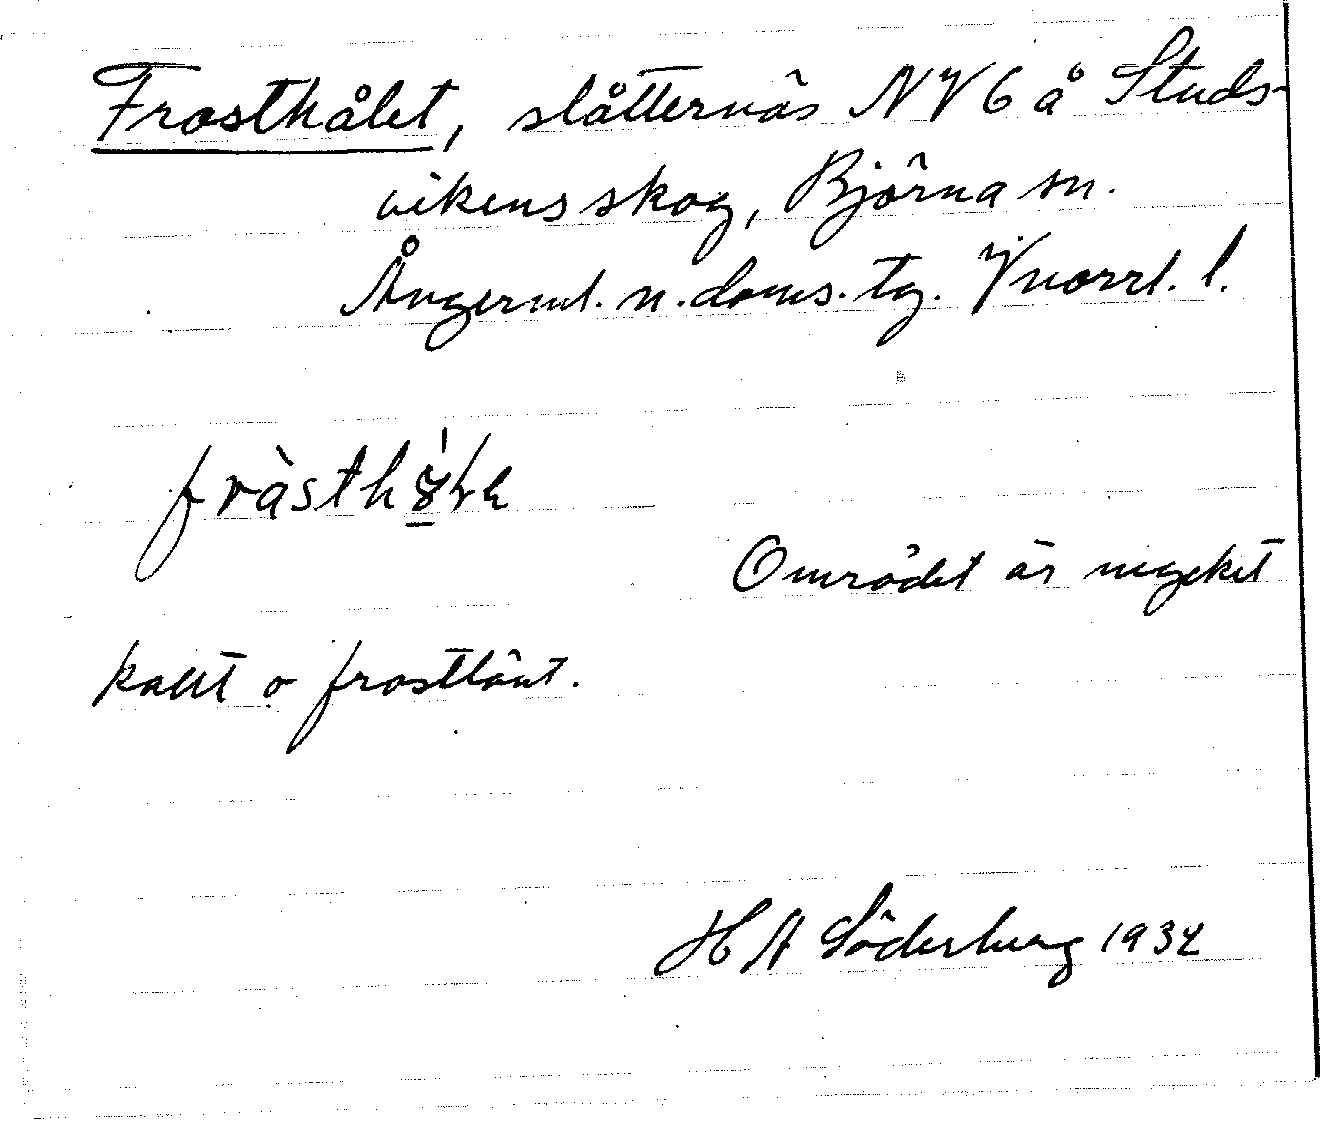 Frosthålet, slåtternäs NV 6 å Studs-
vikens skog, Björna sn.
Ångerml. n. doms. tg. Vnorrl. l.
Området är mycket
kallt o frostlänt.
H A Söderberg 1934